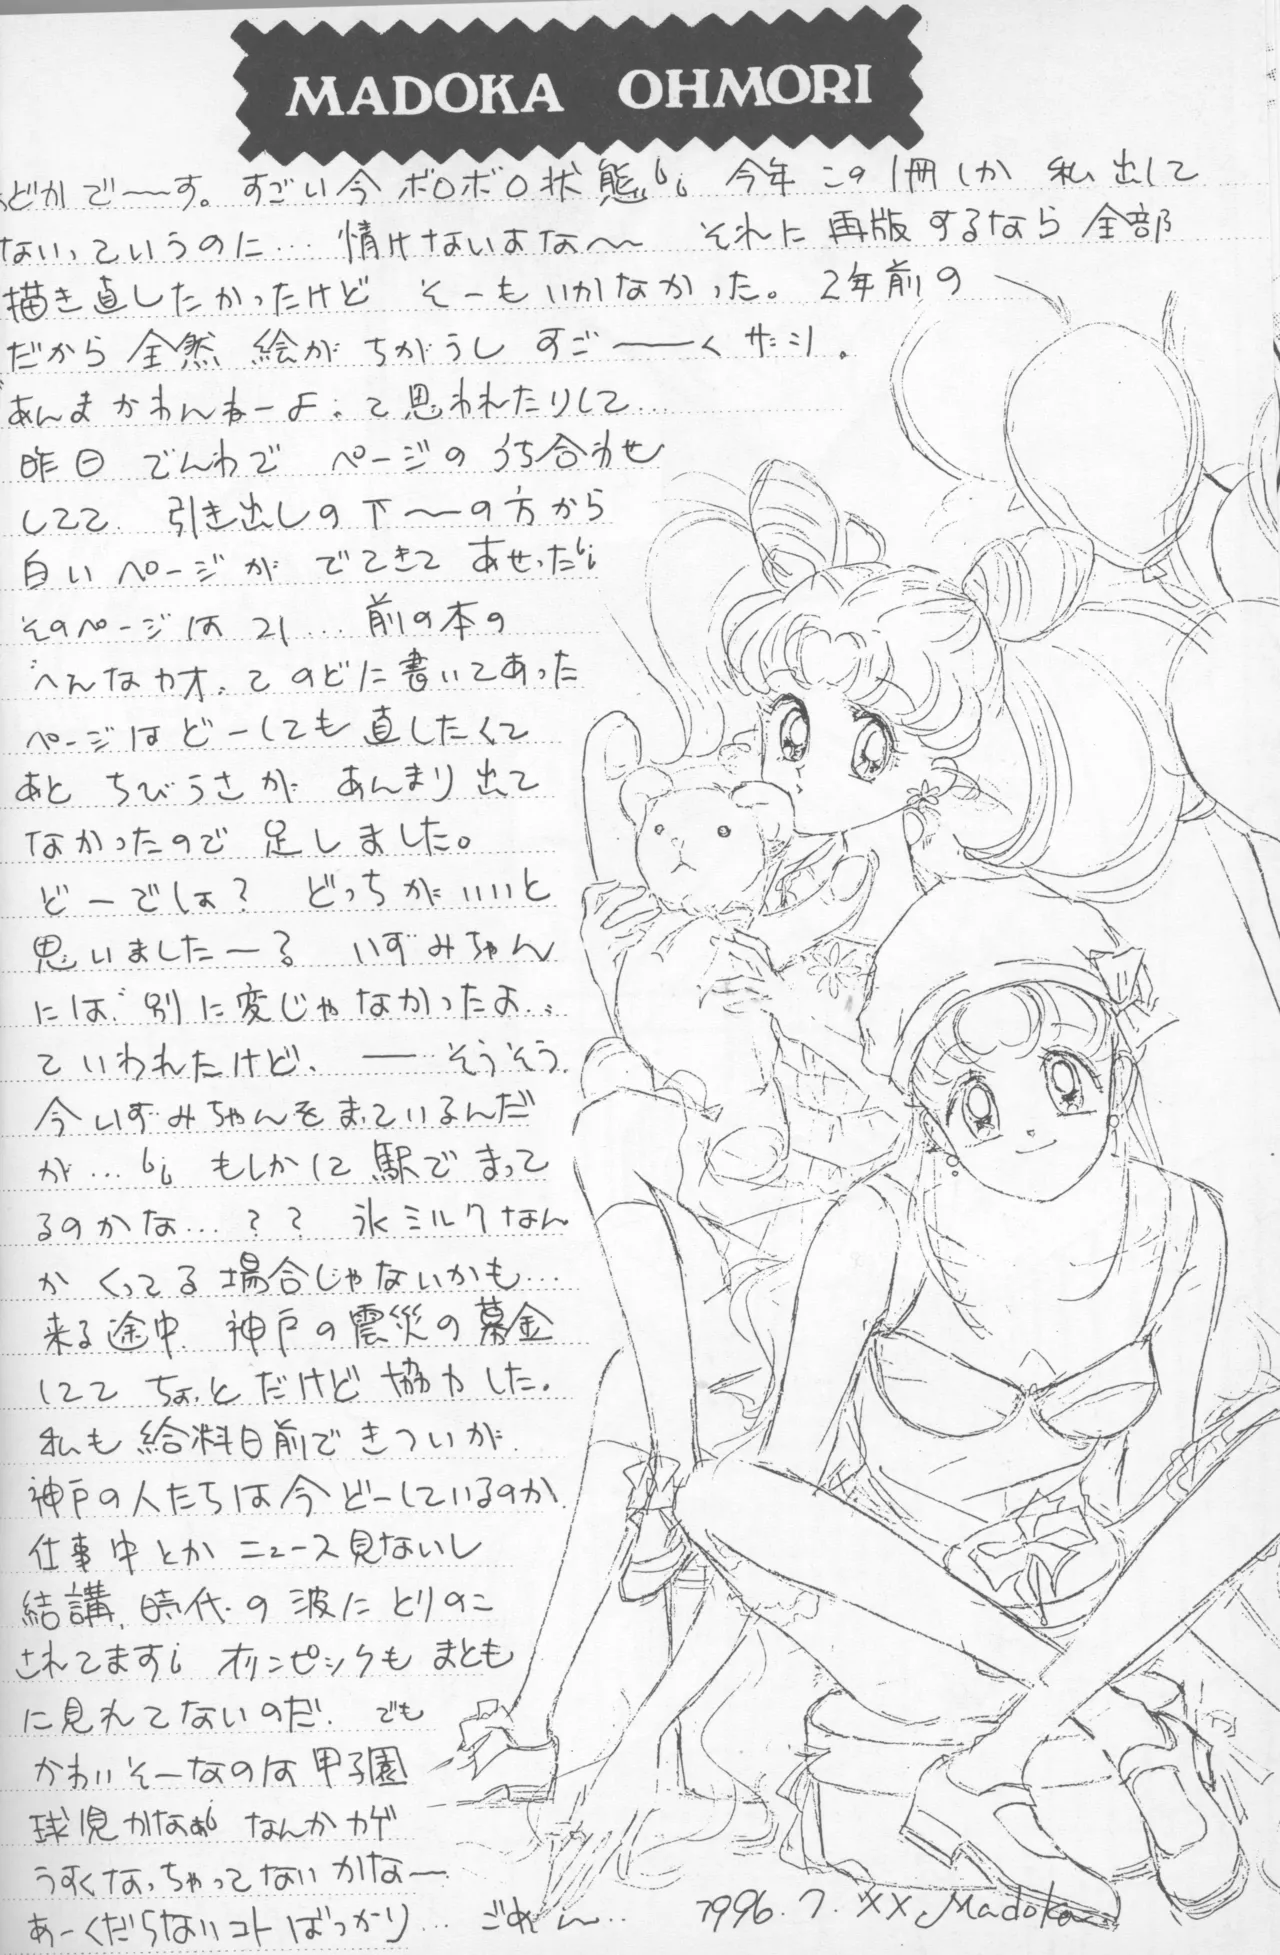 MADOKA OHMORI
どかで〜〜す。すごい今ボロボロ状態 今年この1冊しか私出して
ないっていうのに… 情けないよな〜〜 それに再版するなら全部
描き直したかったけど そーもいかなかった。2年前の
だから全然絵がちがうし すご———く
あんまかわんねーよ って思われたりして…
昨日でんわで ページのうち合わせ
してて 引き出しの下〜の方から
白いページが でてきて あせった
そのページは21… 前の本の
“へんなカオ”
ページはどーしても直したくて
あと ちびうさが あんまり出て
なかったので 足しました。
どーでしょ？ どっちがいいと
思いましたー？ いずみちゃん
には“別に変じゃなかったよ”
ていわれたけど、—— そうそう
今いずみちゃんをまっているんだ
が… もしかして駅でまって
るのかな…？？ 氷ミルクなん
か くってる場合じゃないかも…
来る途中 神戸の震災の募金
してて ちょっとだけど協力した。
私も給料日前できついが
神戸の人たちは今どーしているのか
仕事中とかニュース見ないし
結講 時代の波にとりのこ
されてます オリンピックもまとも
に見れてないのだ でも
かわいそーなのは甲子園
球児かなぁ なんかカゲ
うすくなっちゃってないかな〜
あーくだらないコトばっかり… ごめん〜‥
1996.7.XX Madoka